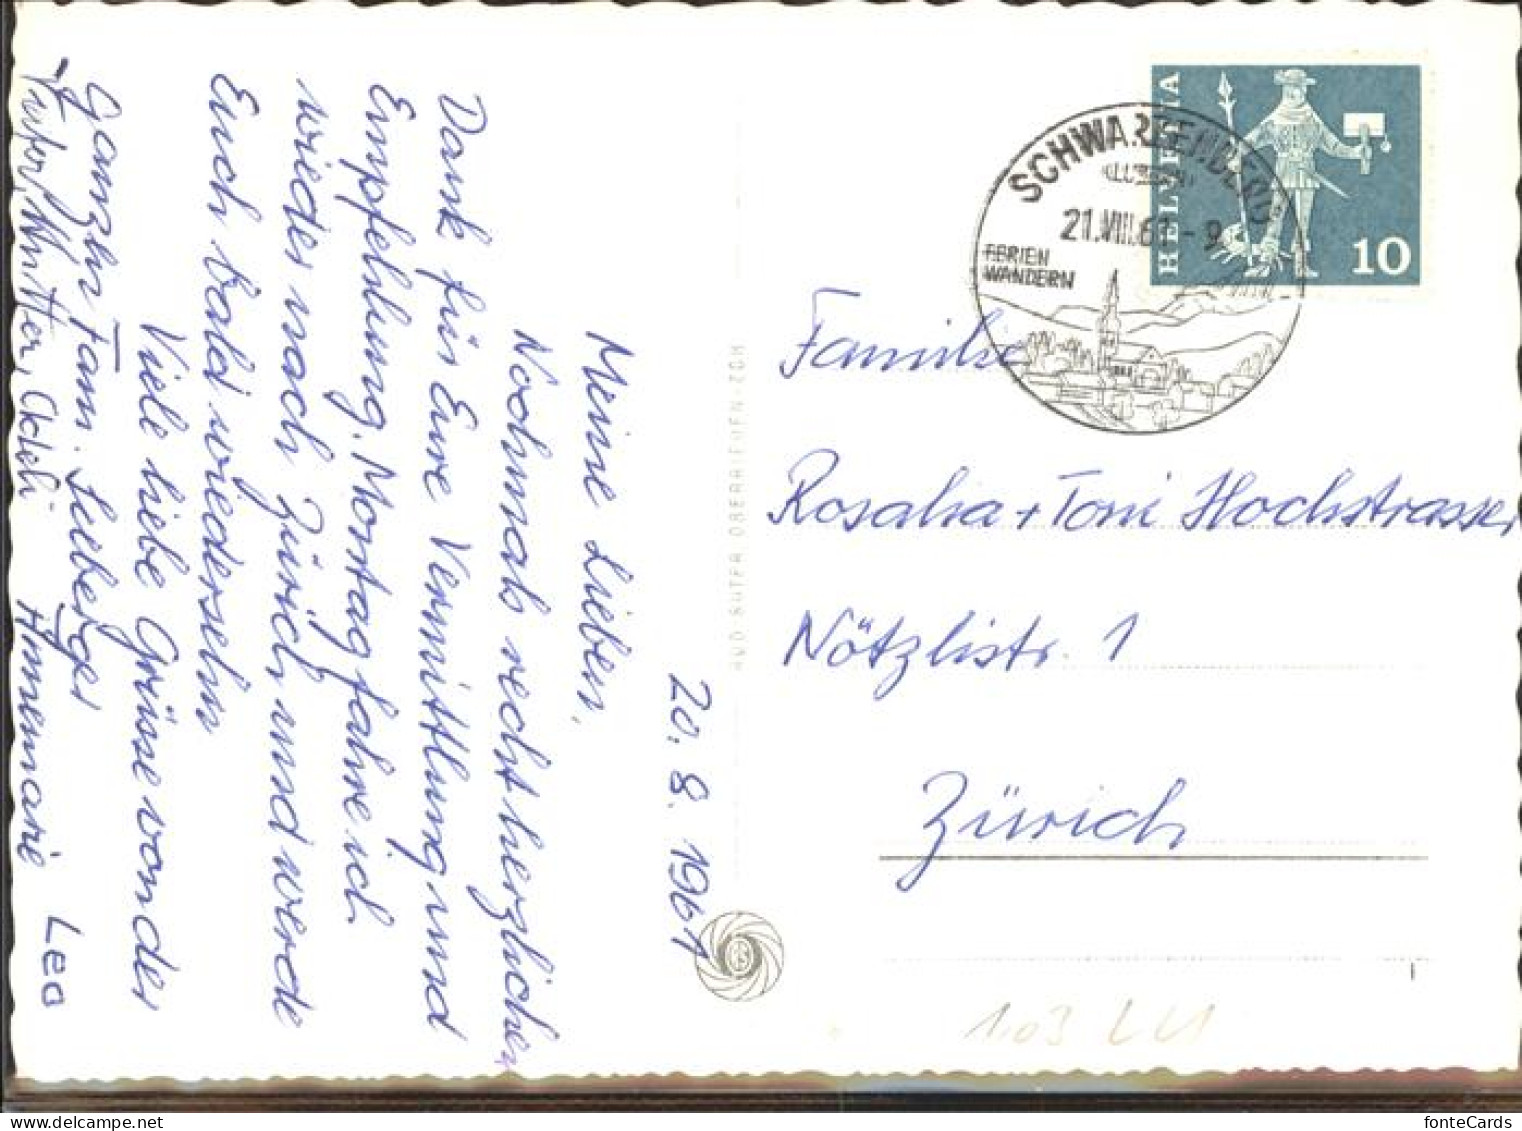 20. 8. 1961
Meine Lieben,
Nochmals recht herzlichen
Dank für Eure Vermittlung und
Empfehlung. Montag fahre ich
wieder nach Zürich und werde
Euch bald wiedersehn
Viele liebe Grüsse von der
Ganzen Fam.
Vater, Mutter, Adeli Annemarie Lea
RUD. SUTER OBERRIEDEN-ZCH
HELVETIA
10
SCHWARZENBERG
(LUZERN)
21.VIII.61-9
FERIEN
WANDERN
Familie
Rosalia + Toni Hochstrasser
Nötzlistr. 1
Zürich
1.03 LU
fonteCards